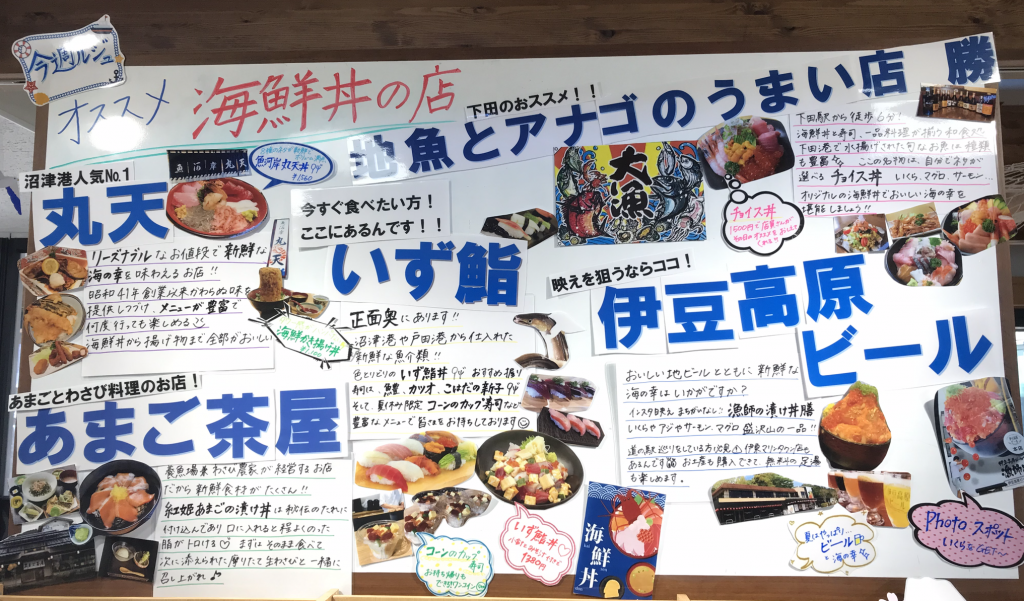 今週ルジュ
オススメ 海鮮丼の店
沼津港人気No.1
丸天
魚河岸丸天
魚河岸丸天丼
リーズナブルなお値段で新鮮な
海の幸を味わえるお店!!
昭和41年創業以来かわらぬ味を
提供しつづけ、メニューが豊富で
何度行っても楽しめる♪
海鮮丼から揚げ物まで全部がおいしい
丸天
海鮮かき揚げ丼
あまごとわさび料理のお店!
あまご茶屋
養魚場兼わさび農家が経営するお店
だから新鮮食材がたくさん!!
紅姫あまごの漬け丼は秘伝のたれに
付け込んであり口に入れると程よくのった
脂がトロける♡ まずはそのまま食べて
次に添えられた摩りたて生わさびと一緒に
召し上がれ♪
今すぐ食べたい方!
ここにあるんです!!!
いず鮨
正面奥にあります!!
沼津港や戸田港から仕入れた
新鮮な魚介類!!
色とりどりのいず鮨丼 おすすめ握り
寿司は、鰹、カツオ、こはだの新子
そして、夏季限定コーンのカップ寿司など
豊富なメニューで皆さまをお待ちしております
コーンのカップ
寿司
お持ち帰りも
できるワンコイン
いず鮨丼♡
海鮮丼
下田のおススメ!!
地魚とアナゴのうまい店 勝
大漁
下田駅から徒歩6分!
海鮮丼と寿司、一品料理が揃う和食処
下田港で水揚げされた旬なお魚は種類
も豊富 ここの名物は、自分でネタが
選べるチョイス丼 いくら、マグロ、サーモン…
オリジナルの海鮮丼でおいしい海の幸を
堪能しましょう!!
チョイス丼
映えを狙うならココ!
伊豆高原
ビール
おいしい地ビールとともに新鮮な
海の幸はいかがですか?
インスタ映えまちがなし!? 漁師の漬け丼膳
いくらやアジやサーモン、マグロ盛沢山の一品!!
道の駅巡りをしている方必見 伊東マリンタウン店も
あるんです お土産も購入できて無料の足湯
も楽しめます。
夏はやっぱり
ビール
と海の幸
Photoスポット
いくらをGET